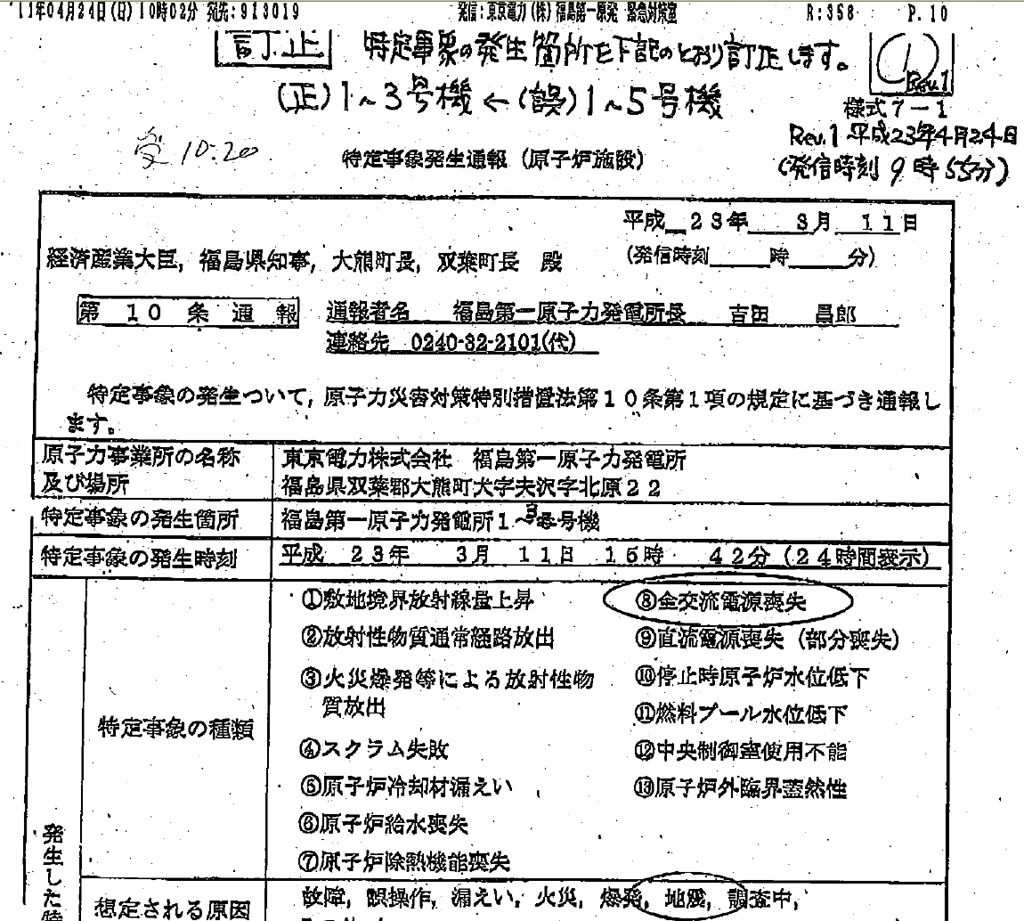 11年04月24日(日)10時02分 宛先:913019 発信:東京電力(株)福島第一原発 緊急対策室 R:358 P.10
訂正 特定事象の発生箇所を下記のとおり訂正します。 ① Rev.1
(正)1~3号機←(誤)1~5号機
様式7-1
Rev.1 平成23年4月24日
(発信時刻9時55分)
受 10:20
特定事象発生通報(原子炉施設)
平成 23年 3月 11日
経済産業大臣,福島県知事,大熊町長,双葉町長 殿 (発信時刻 時 分)
第10条通報 通報者名 福島第一原子力発電所長 吉田 昌郎
連絡先 0240-32-2101(代)
特定事象の発生ついて,原子力災害対策特別措置法第10条第1項の規定に基づき通報し
ます。
原子力事業所の名称 東京電力株式会社 福島第一原子力発電所
及び場所 福島県双葉郡大熊町大字夫沢字北原22
特定事象の発生箇所 福島第一原子力発電所1~3号機
特定事象の発生時刻 平成 23年 3月 11日 15時 42分(24時間表示)
発生した
特定事象の種類
①敷地境界放射線量上昇
②放射性物質通常経路放出
③火災爆発等による放射性物
質放出
④スクラム失敗
⑤原子炉冷却材漏えい
⑥原子炉給水喪失
⑦原子炉除熱機能喪失
⑧全交流電源喪失
⑨直流電源喪失(部分喪失)
⑩停止時原子炉水位低下
⑪燃料プール水位低下
⑫中央制御室使用不能
⑬原子炉外臨界蓋然性
想定される原因 故障,誤操作,漏えい,火災,爆発,地震,調査中,